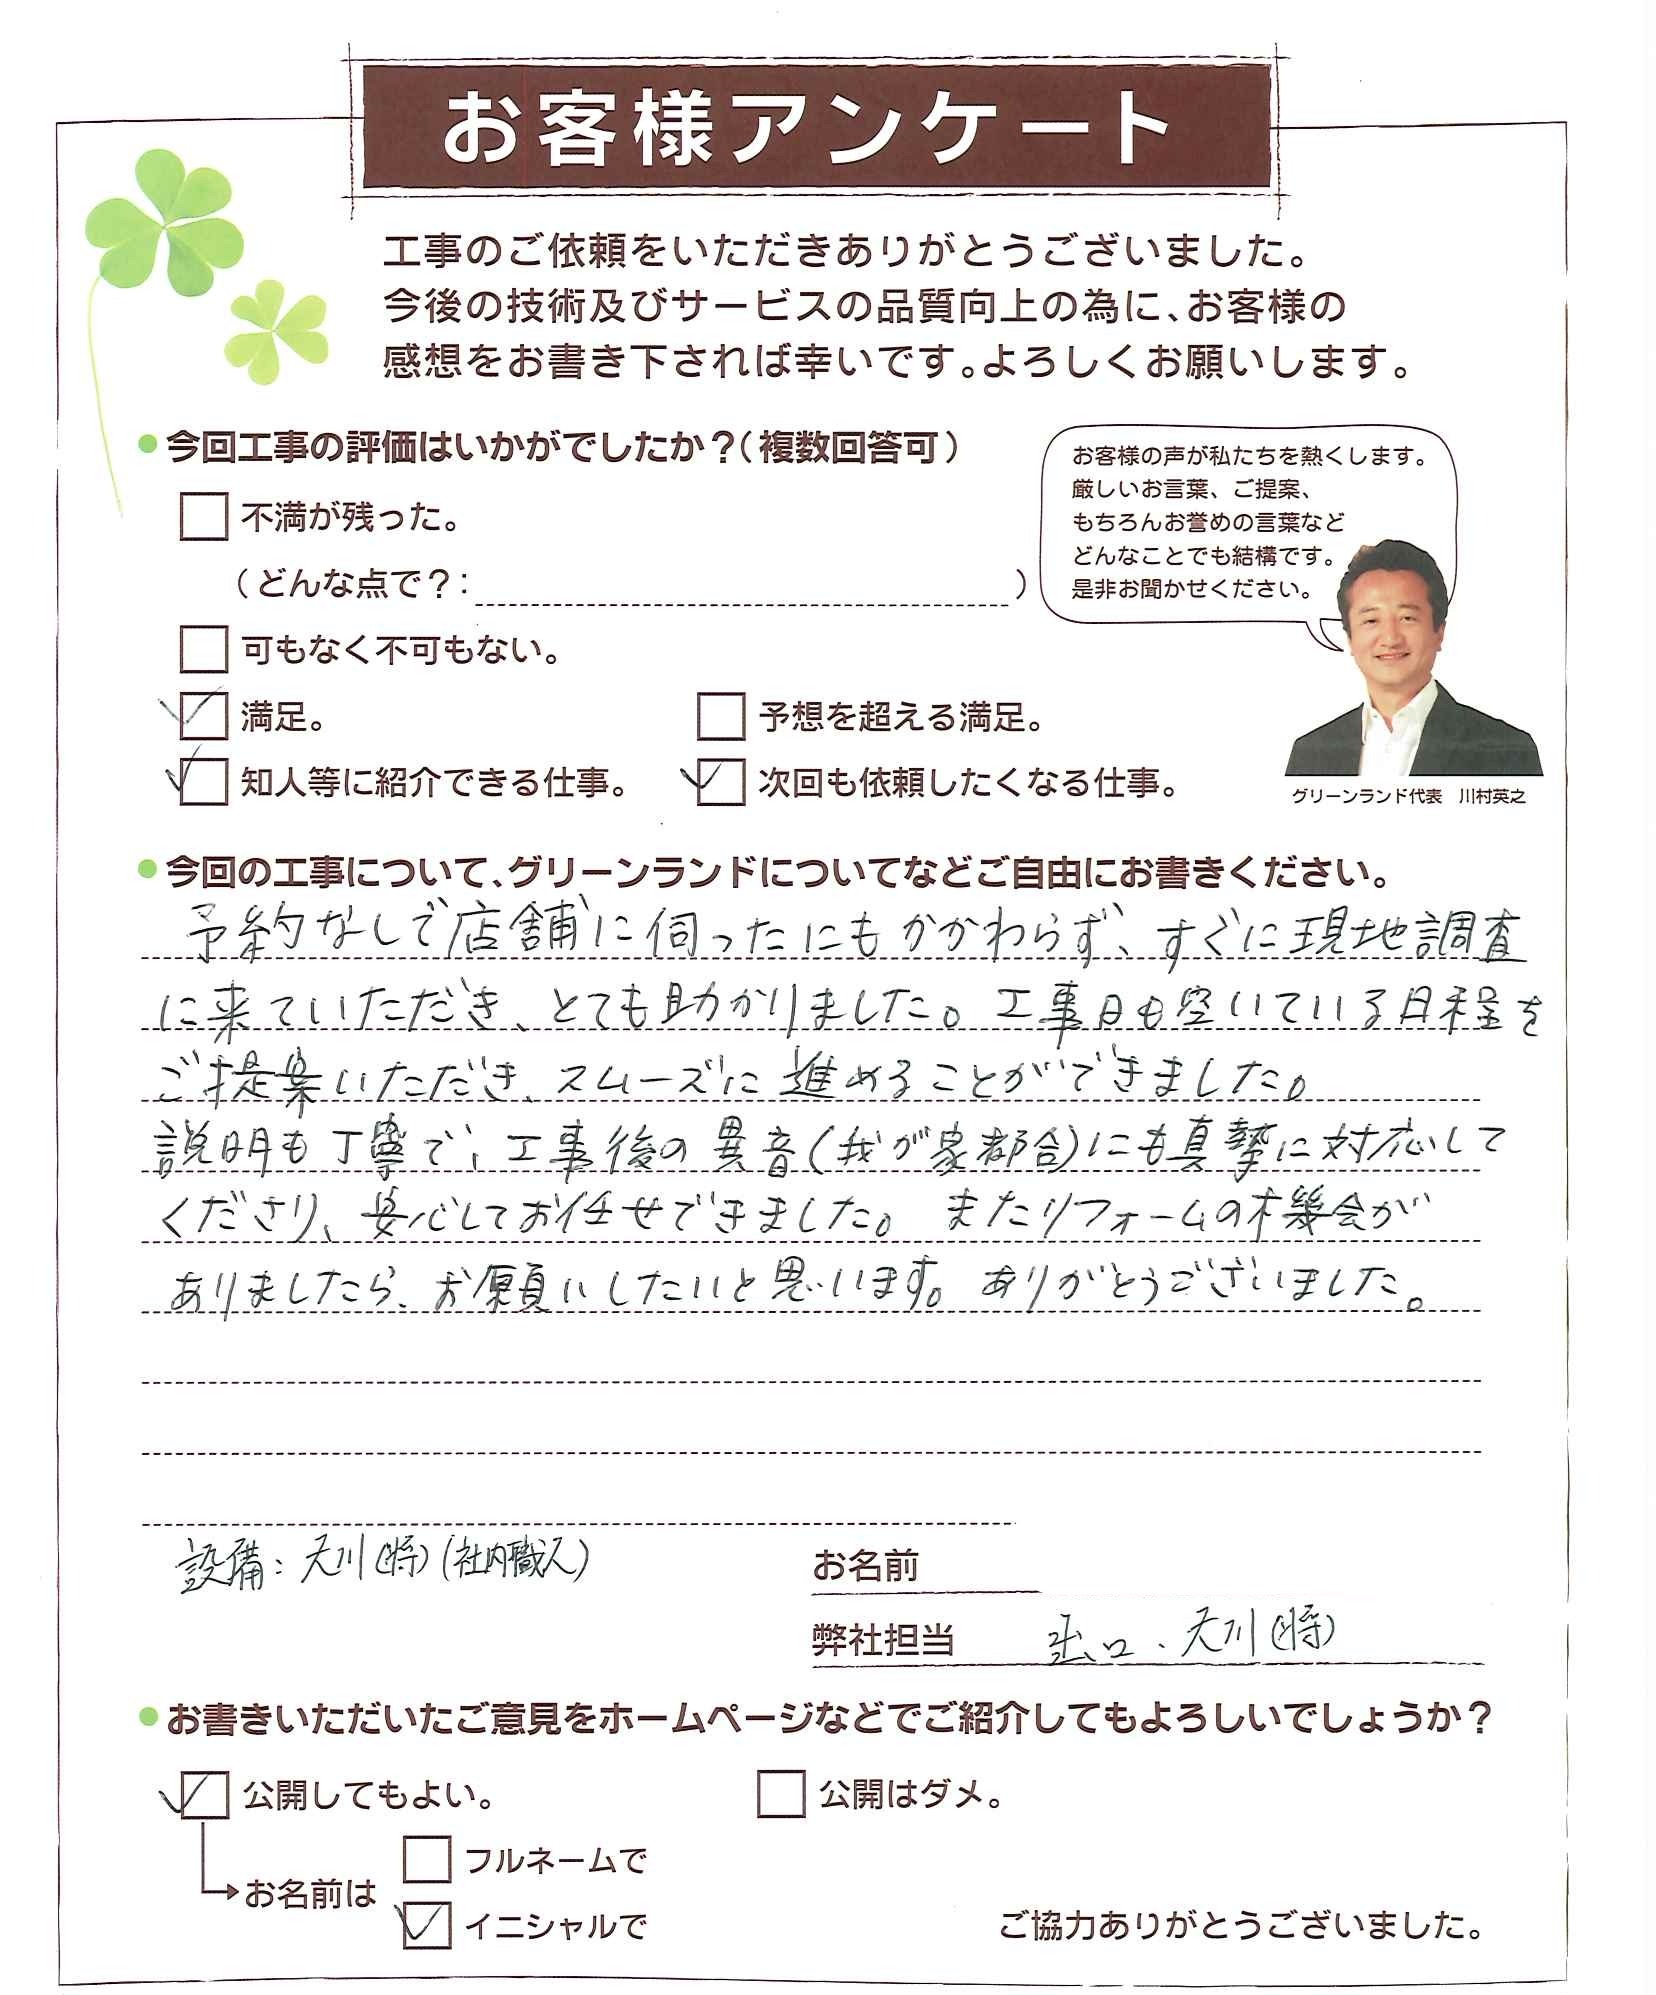 お客様アンケート
工事のご依頼をいただきありがとうございました。
今後の技術及びサービスの品質向上の為に、お客様の
感想をお書き下されば幸いです。よろしくお願いします。
今回工事の評価はいかがでしたか？（複数回答可）
不満が残った。
（どんな点で？： ）
可もなく不可もない。
満足。
予想を超える満足。
知人等に紹介できる仕事。
次回も依頼したくなる仕事。
お客様の声が私たちを熱くします。
厳しいお言葉、ご提案、
もちろんお誉めの言葉など
どんなことでも結構です。
是非お聞かせください。
グリーンランド代表 川村英之
今回の工事について、グリーンランドについてなどご自由にお書きください。
予約なしで店舗に伺ったにもかかわらず、すぐに現地調査
に来ていただき、とても助かりました。工事日も空いている日程を
ご提案いただき、スムーズに進めることができました。
説明も丁寧で、工事後の異音（我が家都合）にも真摯に対応して
くださり、安心してお任せできました。またリフォームの機会が
ありましたら、お願いしたいと思います。ありがとうございました。
設備：天川（将）（社内職人）
お名前
弊社担当 口、天川（将）
お書きいただいたご意見をホームページなどでご紹介してもよろしいでしょうか？
公開してもよい。
公開はダメ。
お名前は
フルネームで
イニシャルで
ご協力ありがとうございました。